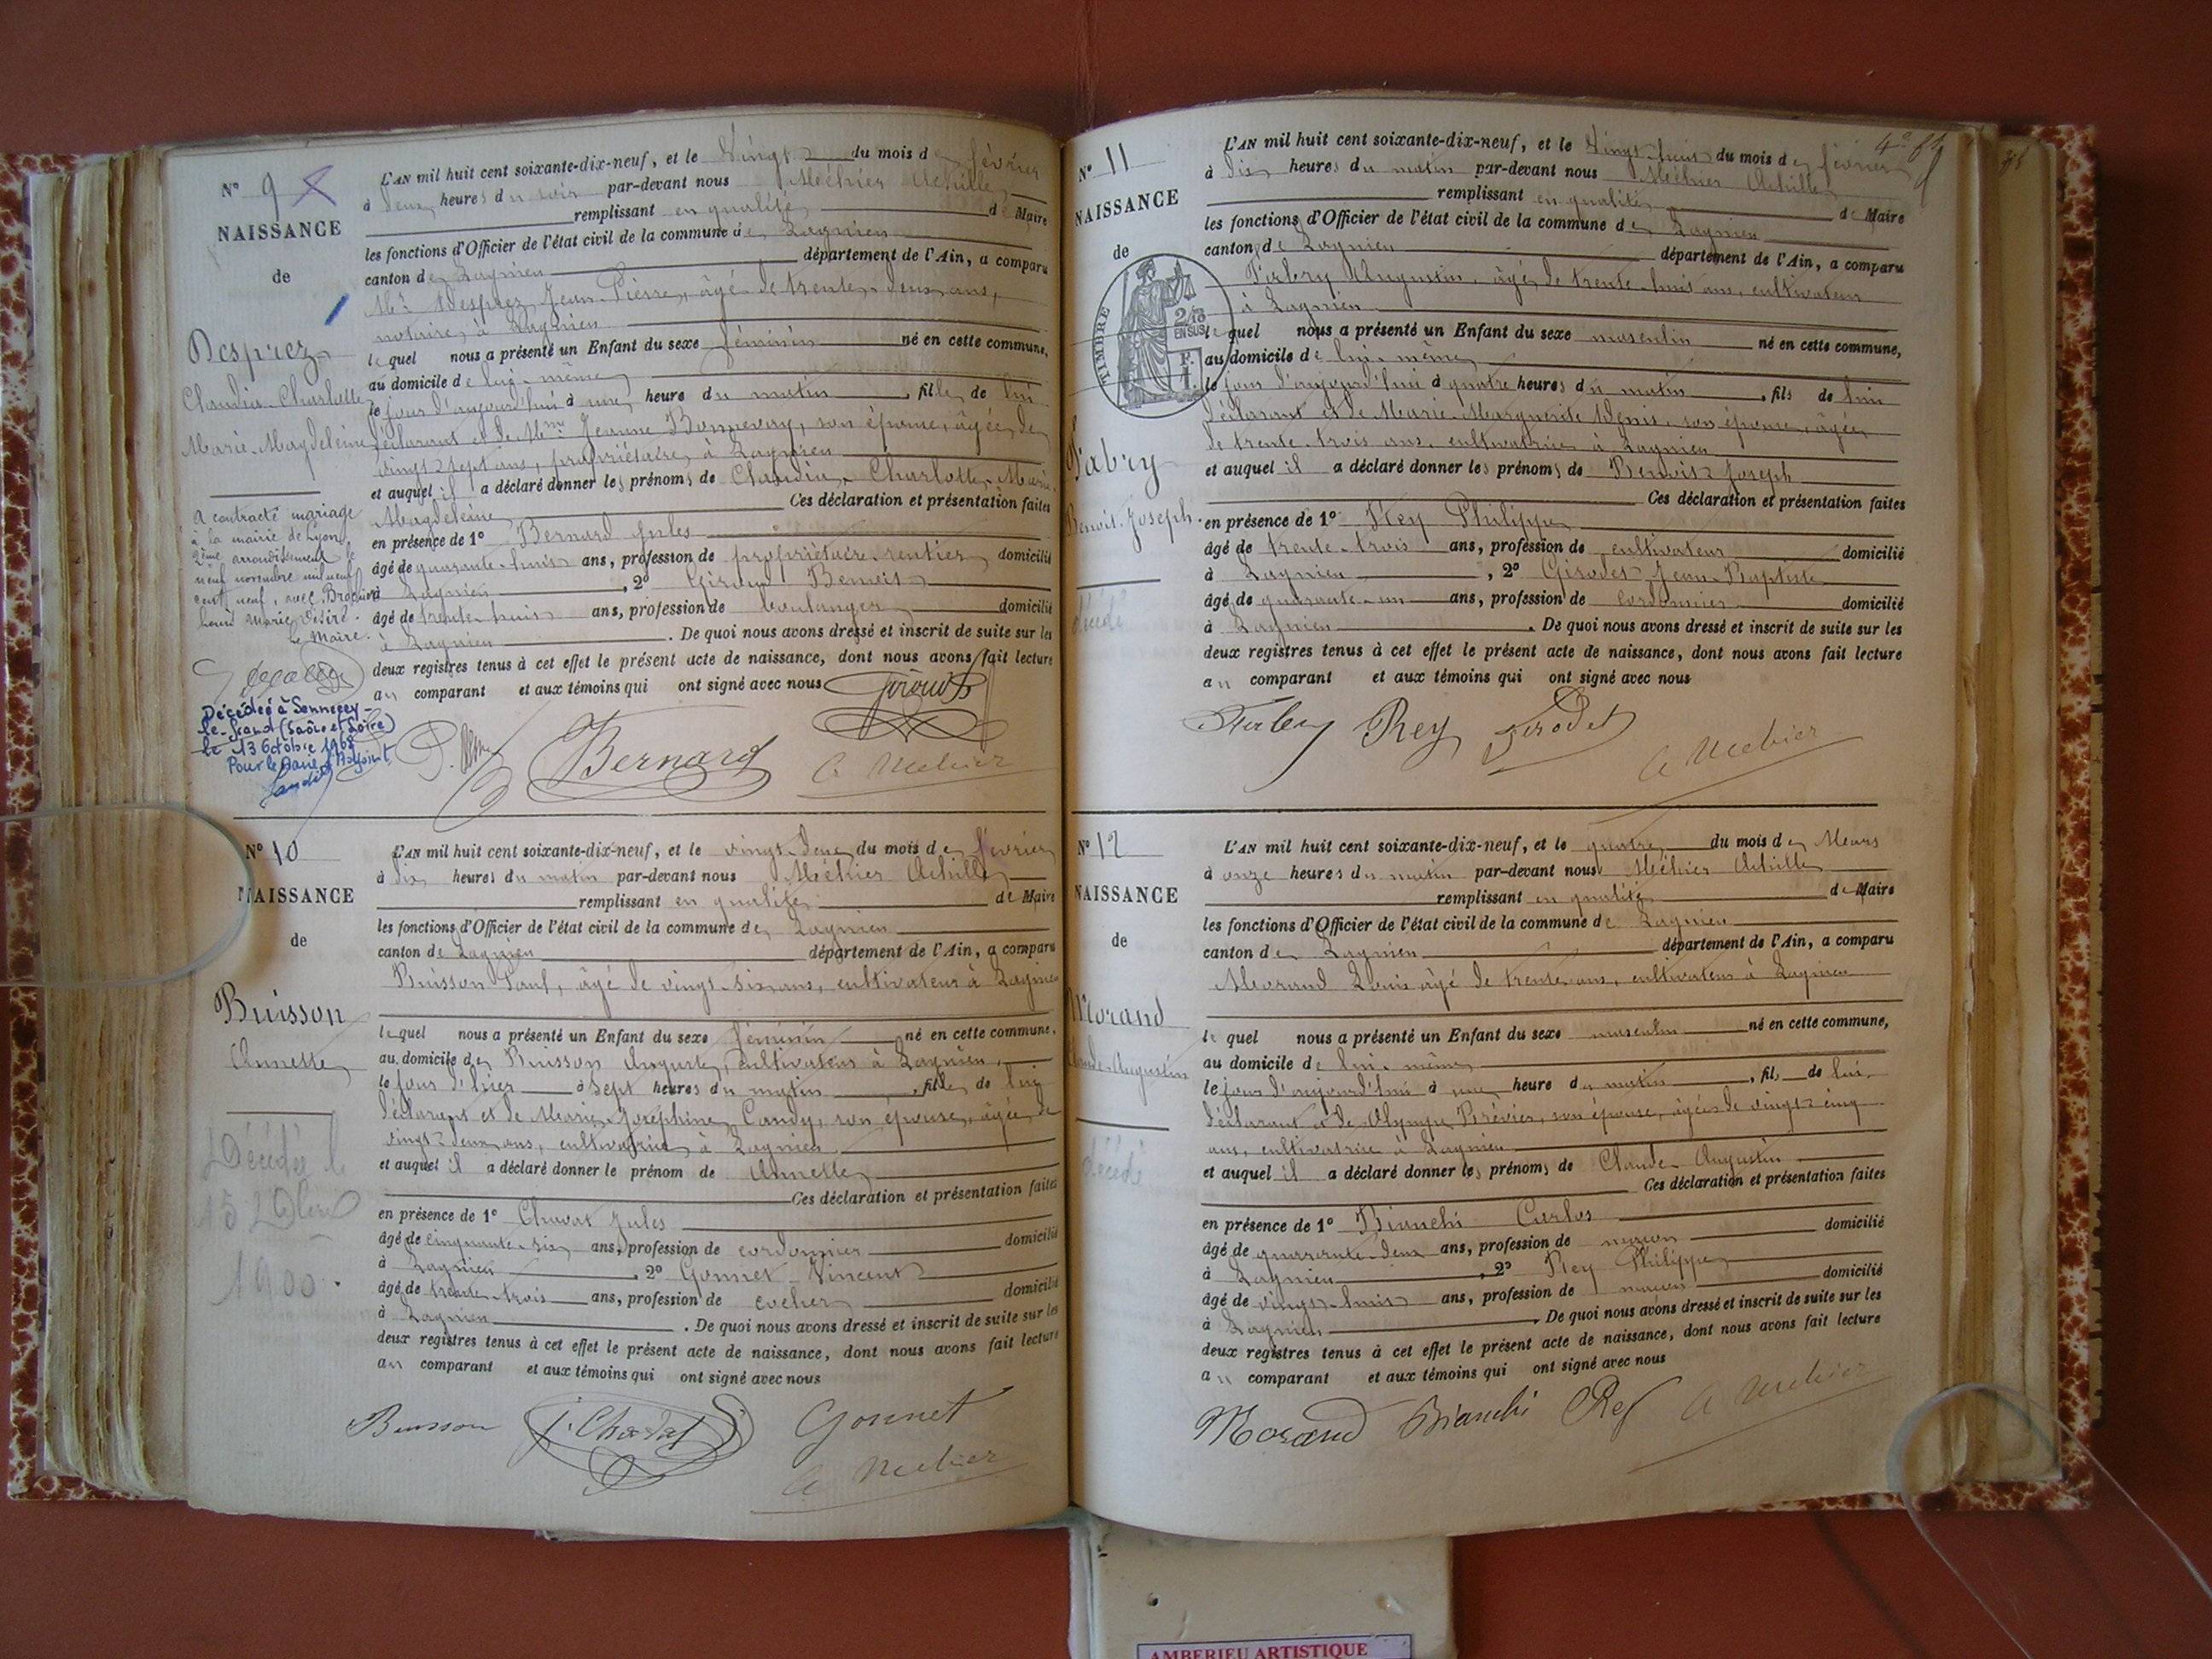 N° 9
NAISSANCE
de
Desprez
Claudia-Charlotte
Marie-Magdeleine
a contracté mariage
à la mairie de Lyon
2ème arrondissement le
neuf novembre mil neuf
cent neuf, avec
Marie Désiré.
Le Maire.
Décédée à Sennecey-
le-Grand (Saône et Loire)
le 13 Octobre 1968
Pour le Maire l'Adjoint
L'AN mil huit cent soixante-dix-neuf, et le Vingt du mois de février
à deux heures du soir par-devant nous Méhier Achille
remplissant en qualité de Maire
les fonctions d'Officier de l'état civil de la commune de Lagnieu
canton de Lagnieu département de l'Ain, a comparu
Mr Desprez Jean-Pierre, âgé de trente-deux ans,
notaire à Lagnieu
lequel nous a présenté un Enfant du sexe féminin né en cette commune,
au domicile de lui-même
le jour d'aujourd'hui à une heure du matin, fille de lui
déclarant et de Mme Jeanne Bonnevay, son épouse, âgée de
vingt-sept ans, propriétaire à Lagnieu
et auquel il a déclaré donner les prénoms de Claudia-Charlotte-Marie
Magdeleine Ces déclaration et présentation faites
en présence de 1° Bernard Jules
âgé de quarante-huit ans, profession de propriétaire-rentier domicilié
à Lagnieu, 2° Giroud Benoit
âgé de trente-huit ans, profession de boulanger domicilié
à Lagnieu. De quoi nous avons dressé et inscrit de suite sur les
deux registres tenus à cet effet le présent acte de naissance, dont nous avons fait lecture
au comparant et aux témoins qui ont signé avec nous
Giroud
Bernard
A Méhier
N° 10
NAISSANCE
de
Buisson
Annette
Décédée le
15
1900
L'AN mil huit cent soixante-dix-neuf, et le vingt-deux du mois de février
à dix heures du matin par-devant nous Méhier Achille
remplissant en qualité de Maire
les fonctions d'Officier de l'état civil de la commune de Lagnieu
canton de Lagnieu département de l'Ain, a comparu
Buisson Paul, âgé de vingt-six ans, cultivateur à Lagnieu
lequel nous a présenté un Enfant du sexe féminin né en cette commune,
au domicile de Buisson Auguste, cultivateur à Lagnieu,
le jour d'hier à sept heures du matin, fille de lui
déclarant et de Marie-Joséphine Candy, son épouse, âgée de
vingt-deux ans, cultivatrice à Lagnieu
et auquel il a déclaré donner le prénom de Annette
Ces déclaration et présentation faites
en présence de 1° Chavat Jules
âgé de cinquante-six ans, profession de cordonnier domicilié
à Lagnieu, 2° Gonnet Vincent
âgé de trente-trois ans, profession de cocher domicilié
à Lagnieu. De quoi nous avons dressé et inscrit de suite sur les
deux registres tenus à cet effet le présent acte de naissance, dont nous avons fait lecture
au comparant et aux témoins qui ont signé avec nous
Buisson J. Chavat Gonnet
A Méhier
N° 11
NAISSANCE
de
TIMBRE
2/10
EN SUS
Fabry
Benoit-Joseph.
décédé
L'AN mil huit cent soixante-dix-neuf, et le Vingt-huit du mois de février
à dix heures du matin par-devant nous Méhier Achille
remplissant en qualité de Maire
les fonctions d'Officier de l'état civil de la commune de Lagnieu
canton de Lagnieu département de l'Ain, a comparu
Fabry Augustin, âgé de trente-huit ans, cultivateur
à Lagnieu
lequel nous a présenté un Enfant du sexe masculin né en cette commune,
au domicile de lui-même
le jour d'aujourd'hui à quatre heures du matin, fils de lui
déclarant et de Marie-Marguerite Denis, son épouse, âgée
de trente-trois ans, cultivatrice à Lagnieu
et auquel il a déclaré donner les prénoms de Benoit Joseph
Ces déclaration et présentation faites
en présence de 1° Rey Philippe
âgé de trente-trois ans, profession de cultivateur domicilié
à Lagnieu, 2° Girodet Jean-Baptiste
âgé de quarante-un ans, profession de cordonnier domicilié
à Lagnieu. De quoi nous avons dressé et inscrit de suite sur les
deux registres tenus à cet effet le présent acte de naissance, dont nous avons fait lecture
au comparant et aux témoins qui ont signé avec nous
Rey Girodet
A Méhier
N° 12
NAISSANCE
de
Morand
Claude-Augustin
décédé
L'AN mil huit cent soixante-dix-neuf, et le quatre du mois de Mars
à onze heures du matin par-devant nous Méhier Achille
remplissant en qualité de Maire
les fonctions d'Officier de l'état civil de la commune de Lagnieu
canton de Lagnieu département de l'Ain, a comparu
Morand Louis âgé de trente ans, cultivateur à Lagnieu
lequel nous a présenté un Enfant du sexe masculin né en cette commune,
au domicile de lui-même
le jour d'aujourd'hui à une heure du matin, fils de lui
déclarant et de Olympe Brévier, son épouse, âgée de vingt-cinq
ans, cultivatrice à Lagnieu
et auquel il a déclaré donner les prénoms de Claude-Augustin
Ces déclaration et présentation faites
en présence de 1° Bianchi Carlos
âgé de quarante-deux ans, profession de maçon domicilié
à Lagnieu, 2° Rey Philippe
âgé de vingt-huit ans, profession de maçon domicilié
à Lagnieu. De quoi nous avons dressé et inscrit de suite sur les
deux registres tenus à cet effet le présent acte de naissance, dont nous avons fait lecture
au comparant et aux témoins qui ont signé avec nous
Morand Bianchi Rey A Méhier
AMBERIEU ARTISTIQUE